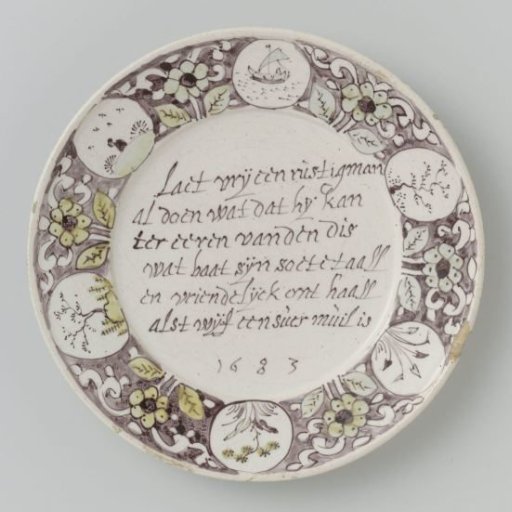 Laet vrij een rustig man
al doen wat dat hy kan
ter eeren van den dis
wat baat syn soete taall
en vriendelijck ont haall
alst wijf een suer muil is
1683